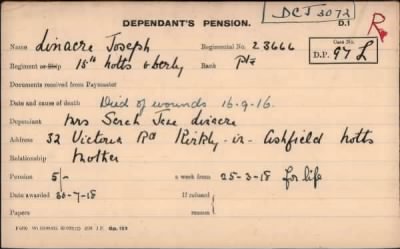 DEPENDANT'S PENSION.
DCJ 3072
D.1
R
Name Linacre Joseph Regimental No. 23666
Case No.
D.P. 97 L
Regiment or Ship 15th Notts & Derby Rank Pte
Documents received from Paymaster
Date and cause of death Died of wounds 16-9-16.
Dependant Mrs Sarah Jane Linacre
Address 32 Victoria Rd Kirkby-in-Ashfield Notts
Relationship Mother
Pension 5/- a week from 25-3-18 for life
Date awarded 30-7-18 If refused
Papers reason